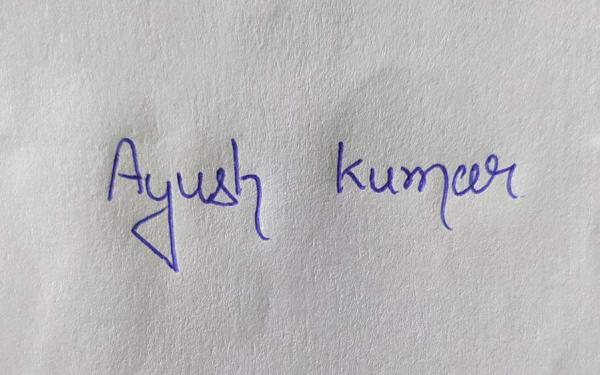 Ayush kumar